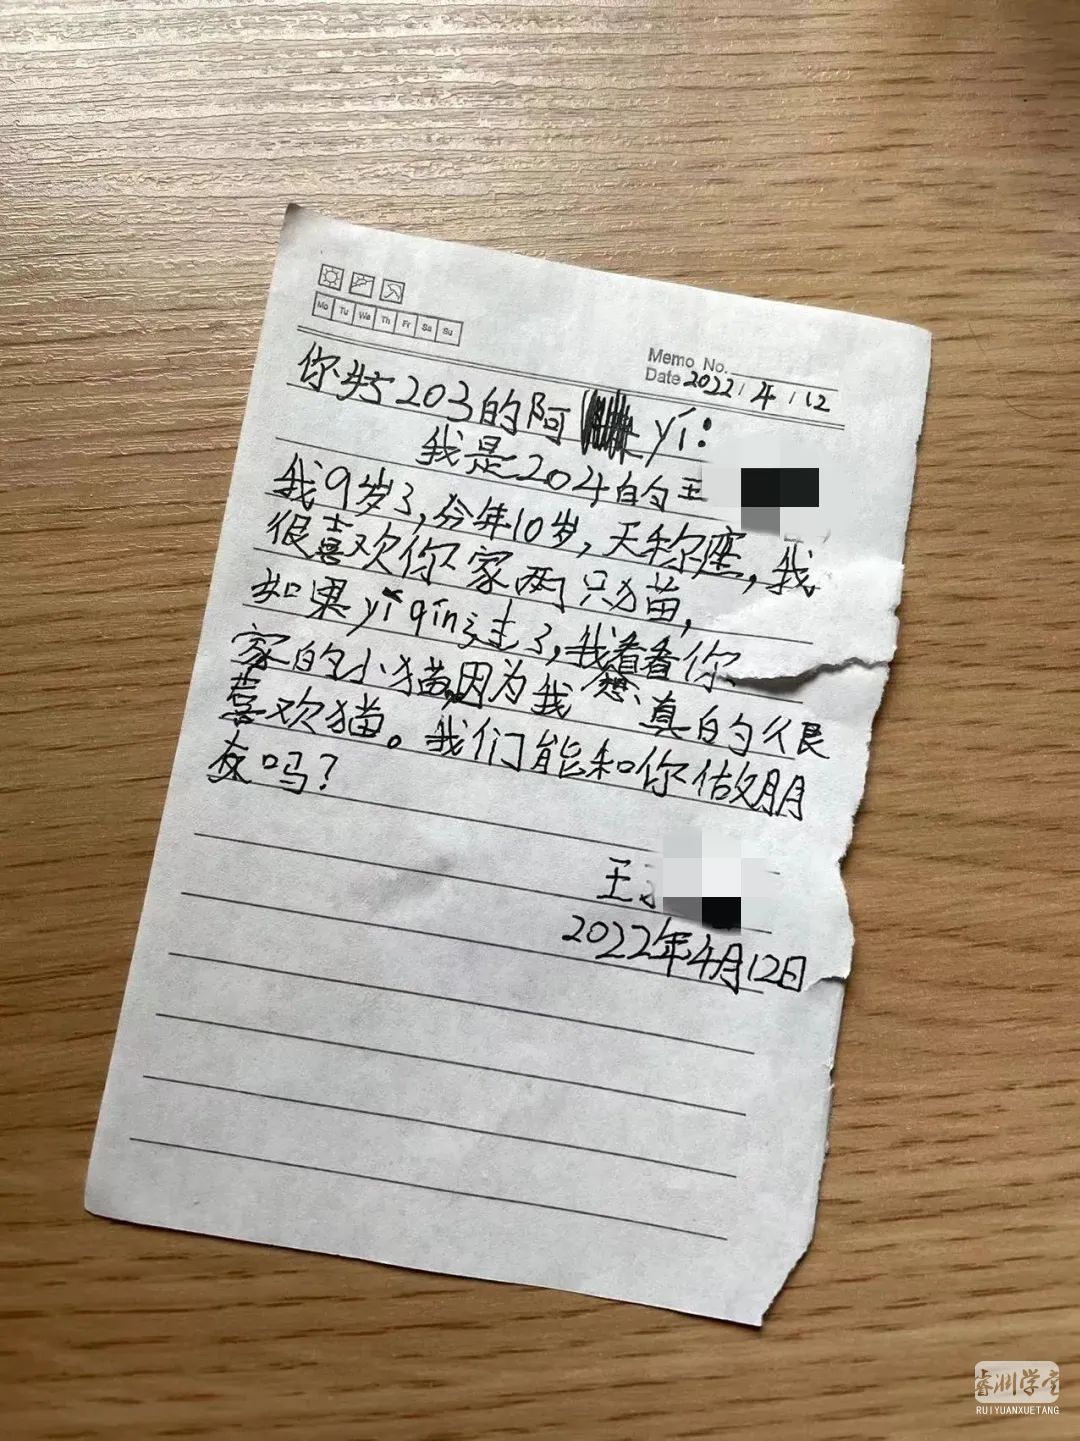 Mo Tu We Th Fr Sa Su
Memo No.
Date 2022/4/12
你好203的阿yí：
我是204的王
我9岁了，今年10岁，天称座，我
很喜欢你家两只猫，
如果yì qín走了，我看看你
想
家的小猫，因为我真的很
喜欢猫。我们能和你做朋
友吗？
王
2022年4月12日
睿渊学堂
RUIYUANXUETANG